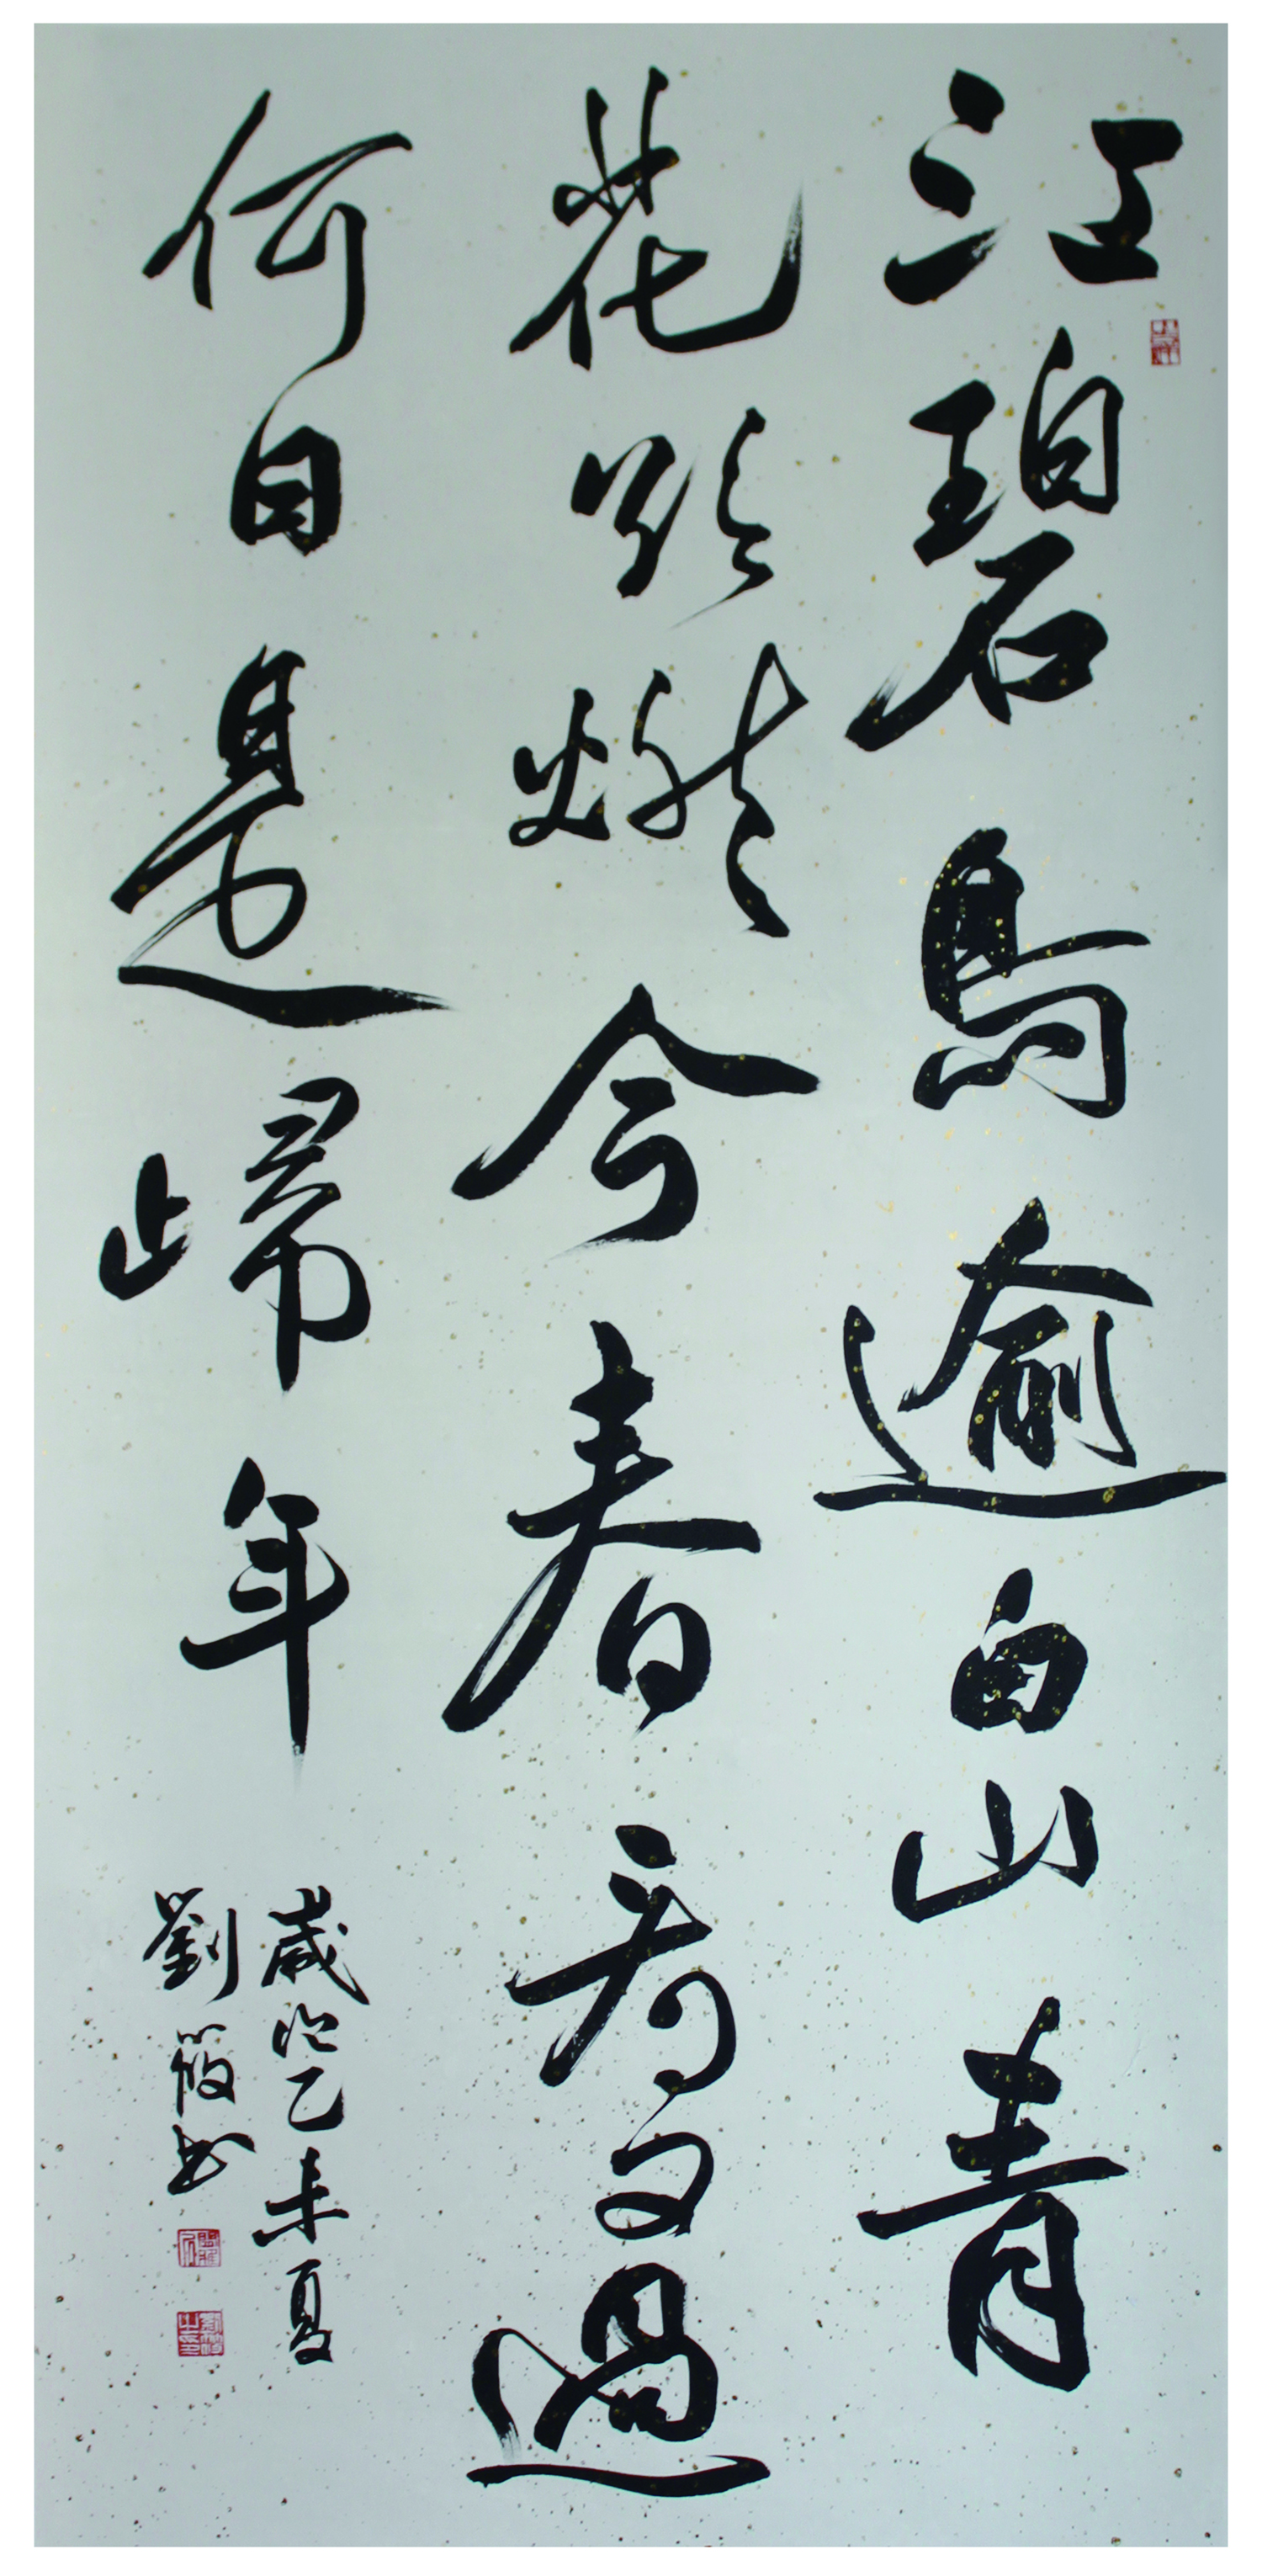 江碧鳥逾白山青
花欲燃今春看又過
何日是歸年
歲次乙未夏
劉筱書